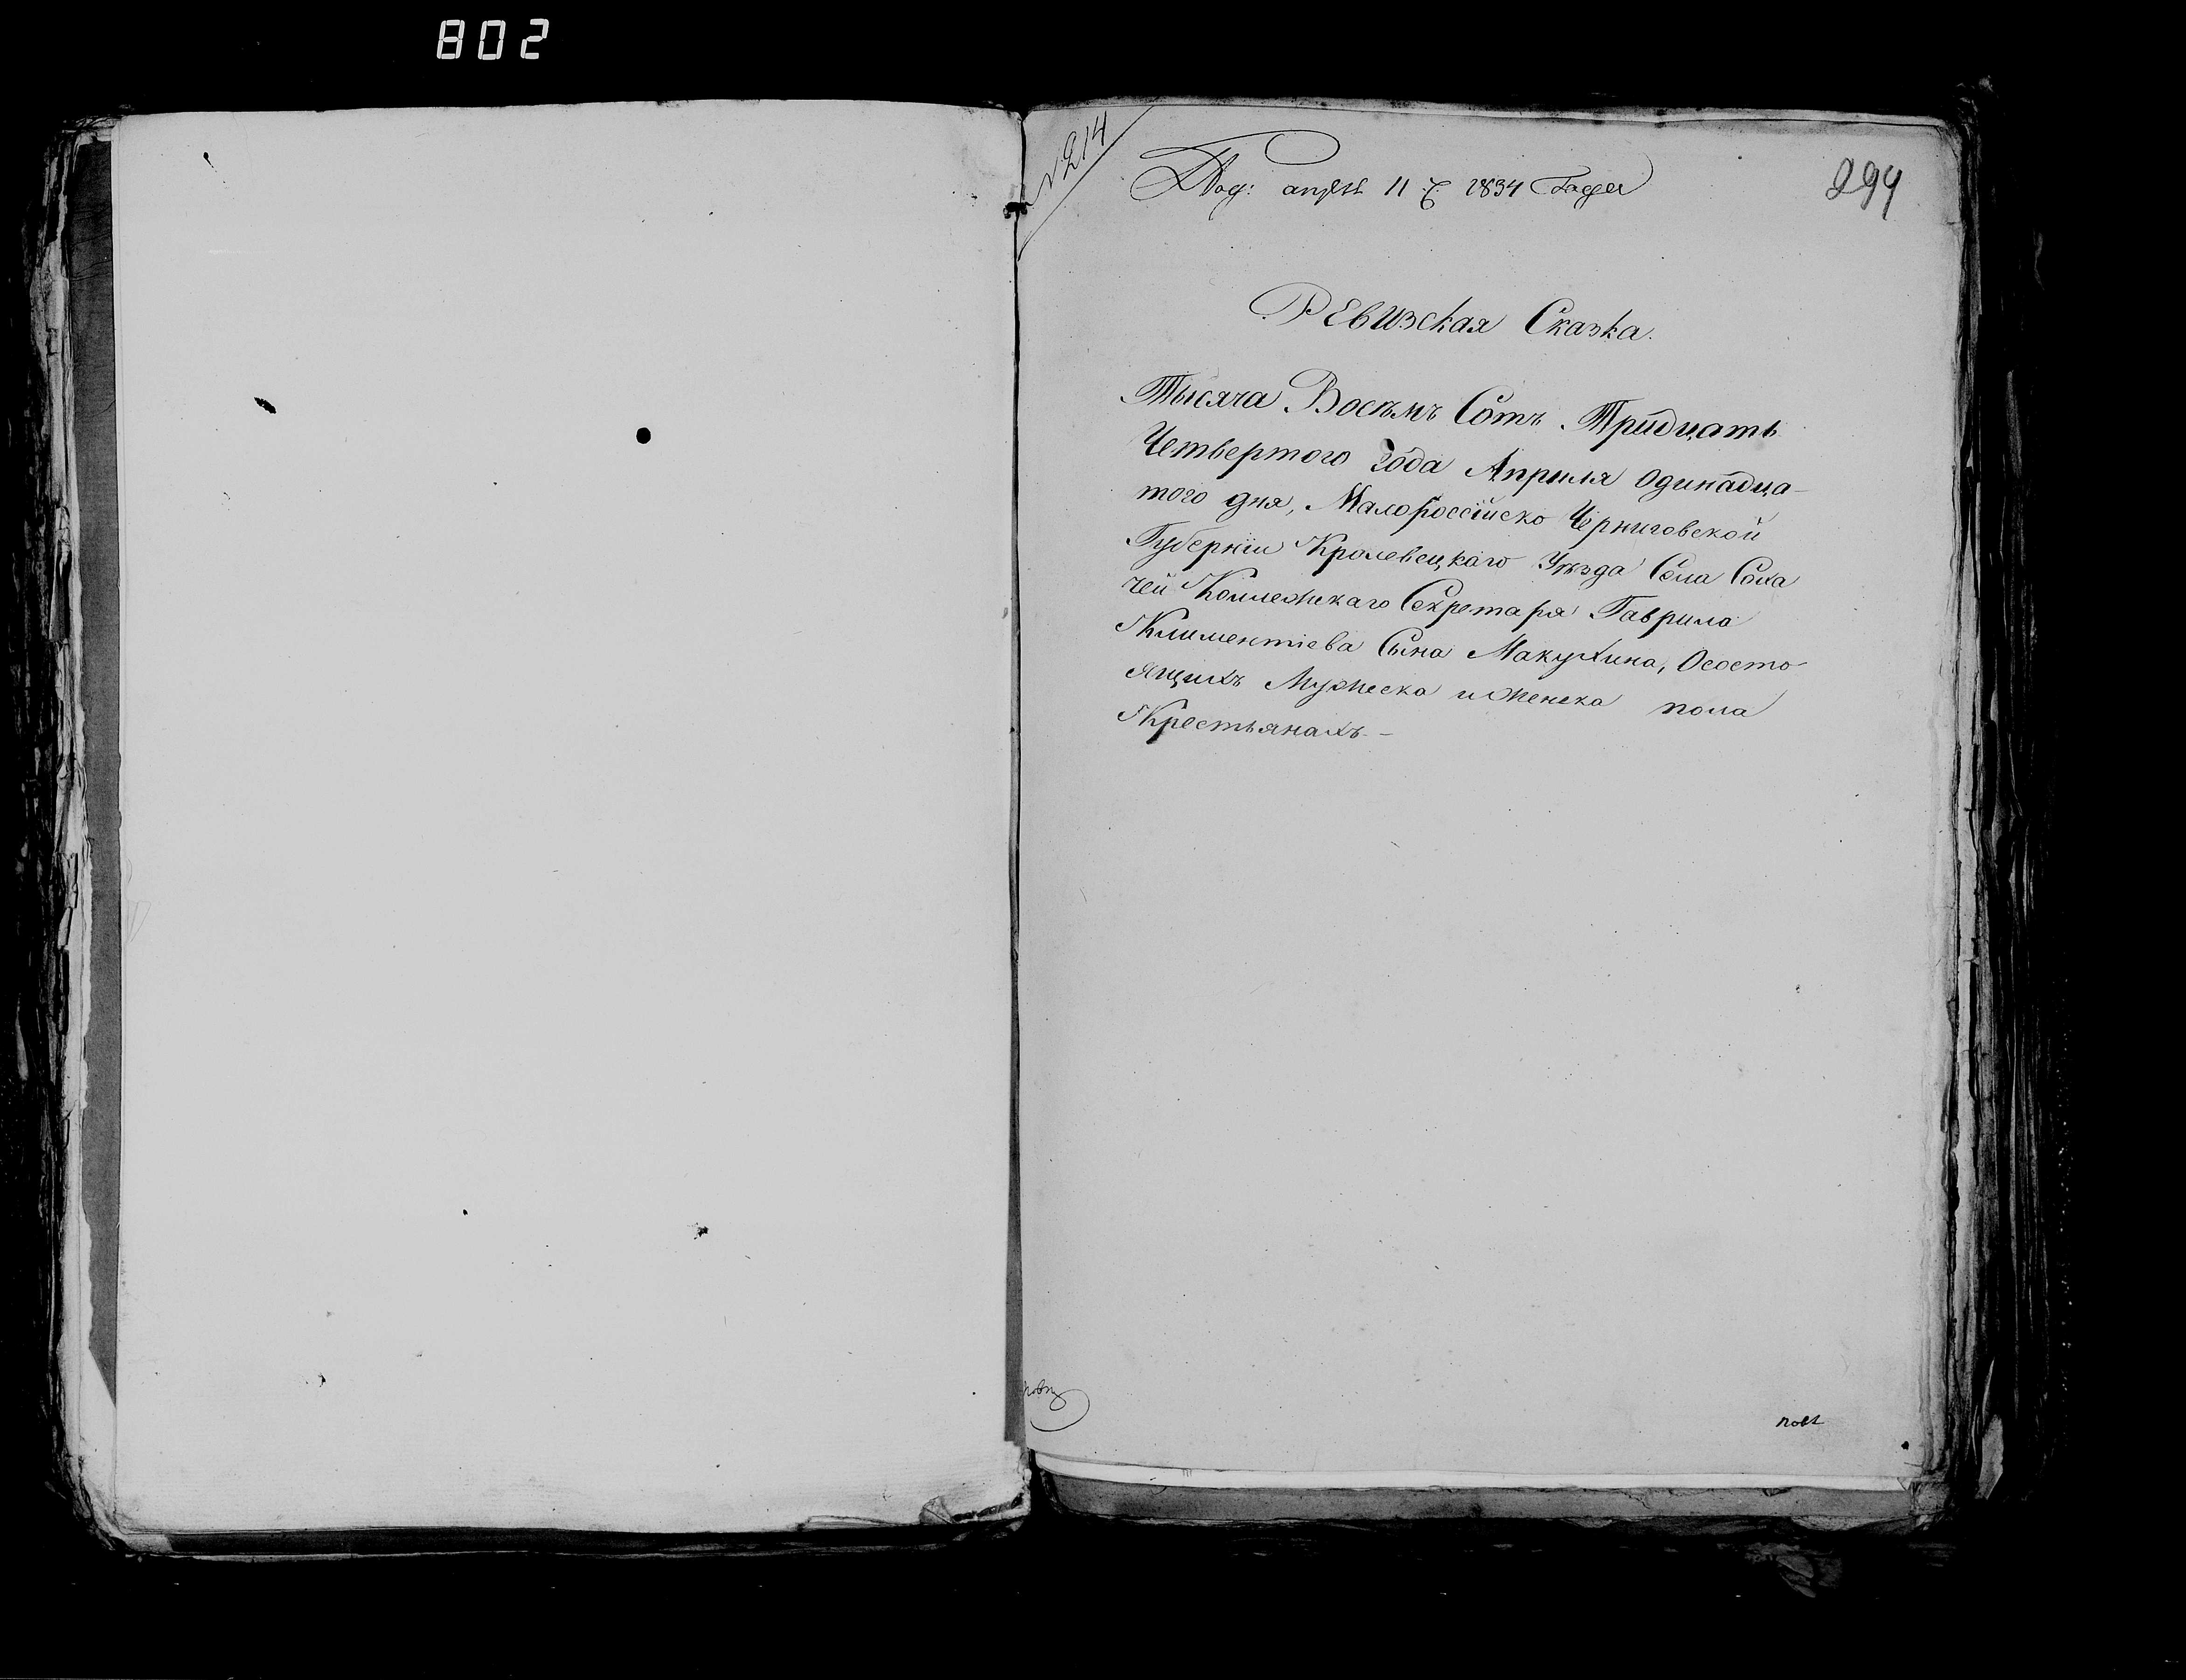 802
№ 214
Под: апрѣля 11 д. 1834 Года
294
Ревизская Сказка.
Тысяча Восемъ Сотъ Тридцать
Четвертого Года Апрыля Одинадца-
того дня, Малороссійско Черниговской
Губерніи Кролевецкаго Уѣзда Села Соха
чей Коллежскаго Секретаря Гаврила
Климентіева Сына Макухина, Осостo
ящихъ Мужеска и женска пола
Крестьянахъ. -